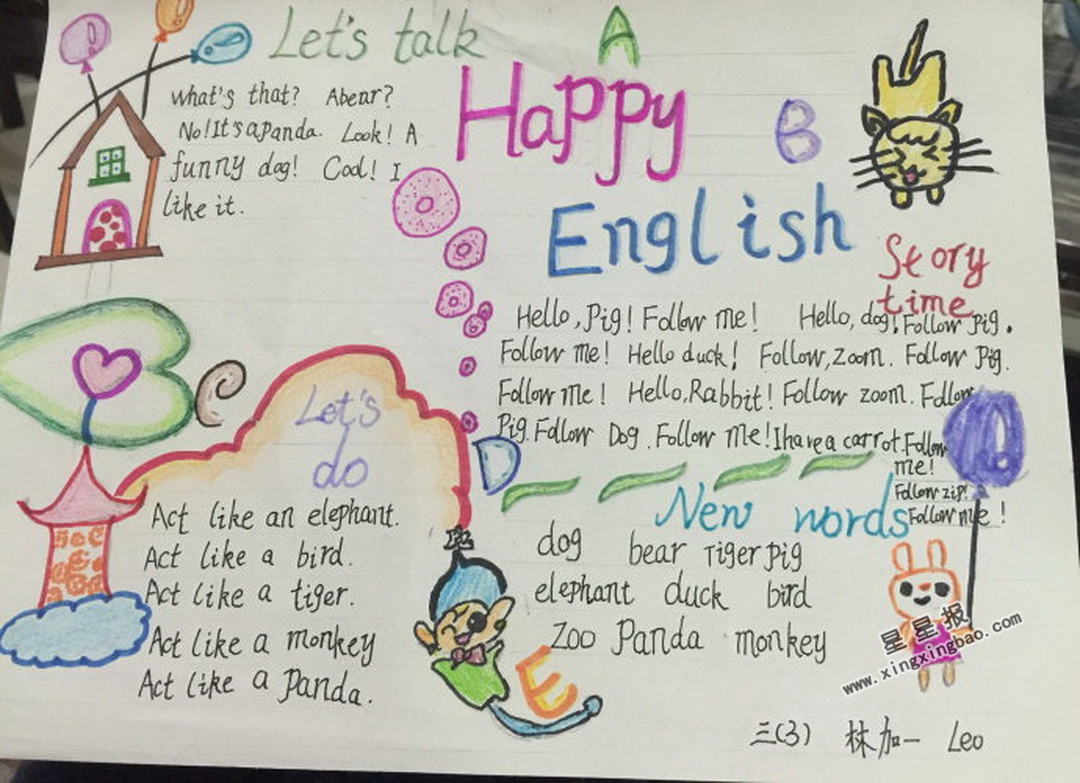 Let's talk
What's that? Abear?
No!It'sapanda. Look! A
funny dog! Cool! I
like it.
A
Happy
B
English
Story
time
Hello,Pig! Follow me! Hello, dog!Follow Pig.
Follow me! Hello duck! Follow,zoom. Follow Pig.
Follow me! Hello,Rabbit! Follow zoom. Follow
Pig.Follow Dog.Follow me!Ihave a carrot.Follow
me!
Follow zip!
Follow me!
C
Let's
do
D
Act like an elephant.
Act like a bird.
Act like a tiger.
Act like a monkey
Act like a Panda.
New words
dog bear Tiger pig
elephant duck bird
Zoo Panda monkey
E
星星报
www.xingxingbao.com
三(3) 林加一 Leo